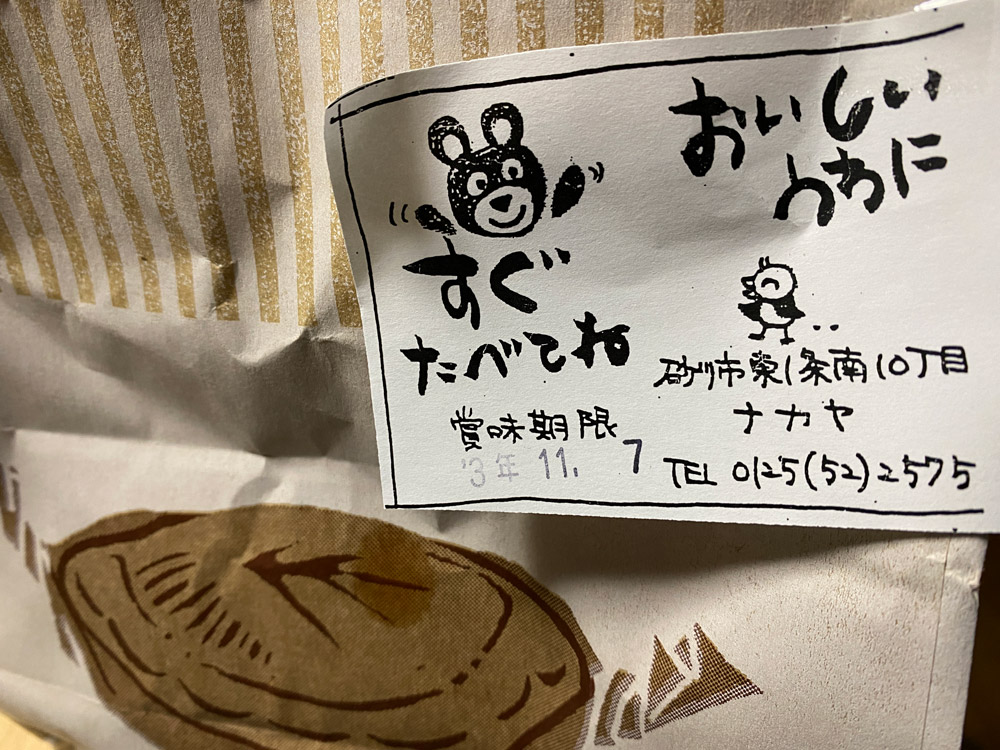 おいしい
うちに
すぐ
たべてね
賞味期限
'3年 11. 7
砂川市東1条南10丁目
ナカヤ
TEL 0125(52)2575